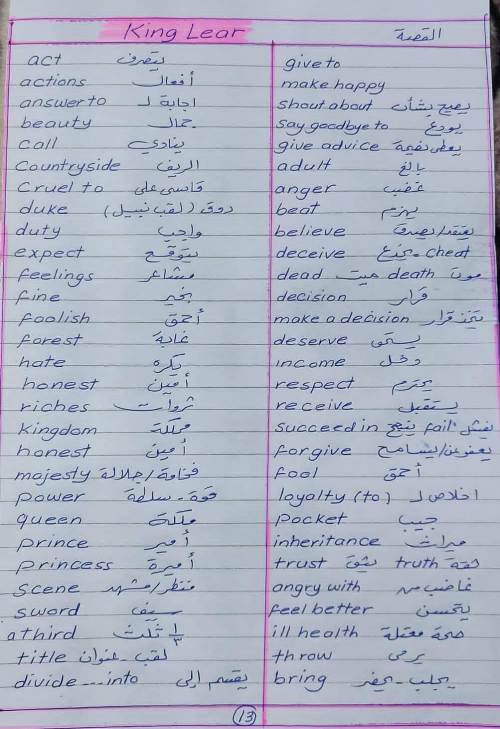 King Lear
القصة
act يتصرف
actions أفعال
answer to اجابة لـ
beauty جمال
call ينادي
Countryside الريف
Cruel to قاسى على
duke دوق (لقب نبيل)
duty واجب
expect يتوقع
feelings مشاعر
fine بخير
foolish أحمق
forest غابة
hate يكره
honest أمين
riches ثروات
kingdom مملكة
honest أمين
majesty فخامة/جلالة
power قوة - سلطة
queen ملكة
prince أمير
princess أميرة
scene منظر/مشهد
sword سيف
a third ثلث ١/٣
title لقب - عنوان
divide...into يقسم إلى
give to
make happy
shout about يصيح بشأن
say goodbye to يودع
give advice يعطى نصيحة
adult بالغ
anger غضب
beat يهزم
believe يعتقد/يصدق
deceive يخدع - cheat
dead ميت death موت
decision قرار
make a decision يتخذ قرار
deserve يستحق
income دخل
respect يحترم
receive يستقبل
succeed in ينجح fail يفشل
forgive يعفو عن/يسامح
fool أحمق
loyalty (to) اخلاص لـ
pocket جيب
inheritance ميراث
trust يثق truth ثقة
angry with غاضب من
feel better يتحسن
ill health صحة معتلة
throw يرمى
bring يجلب - يحضر
13